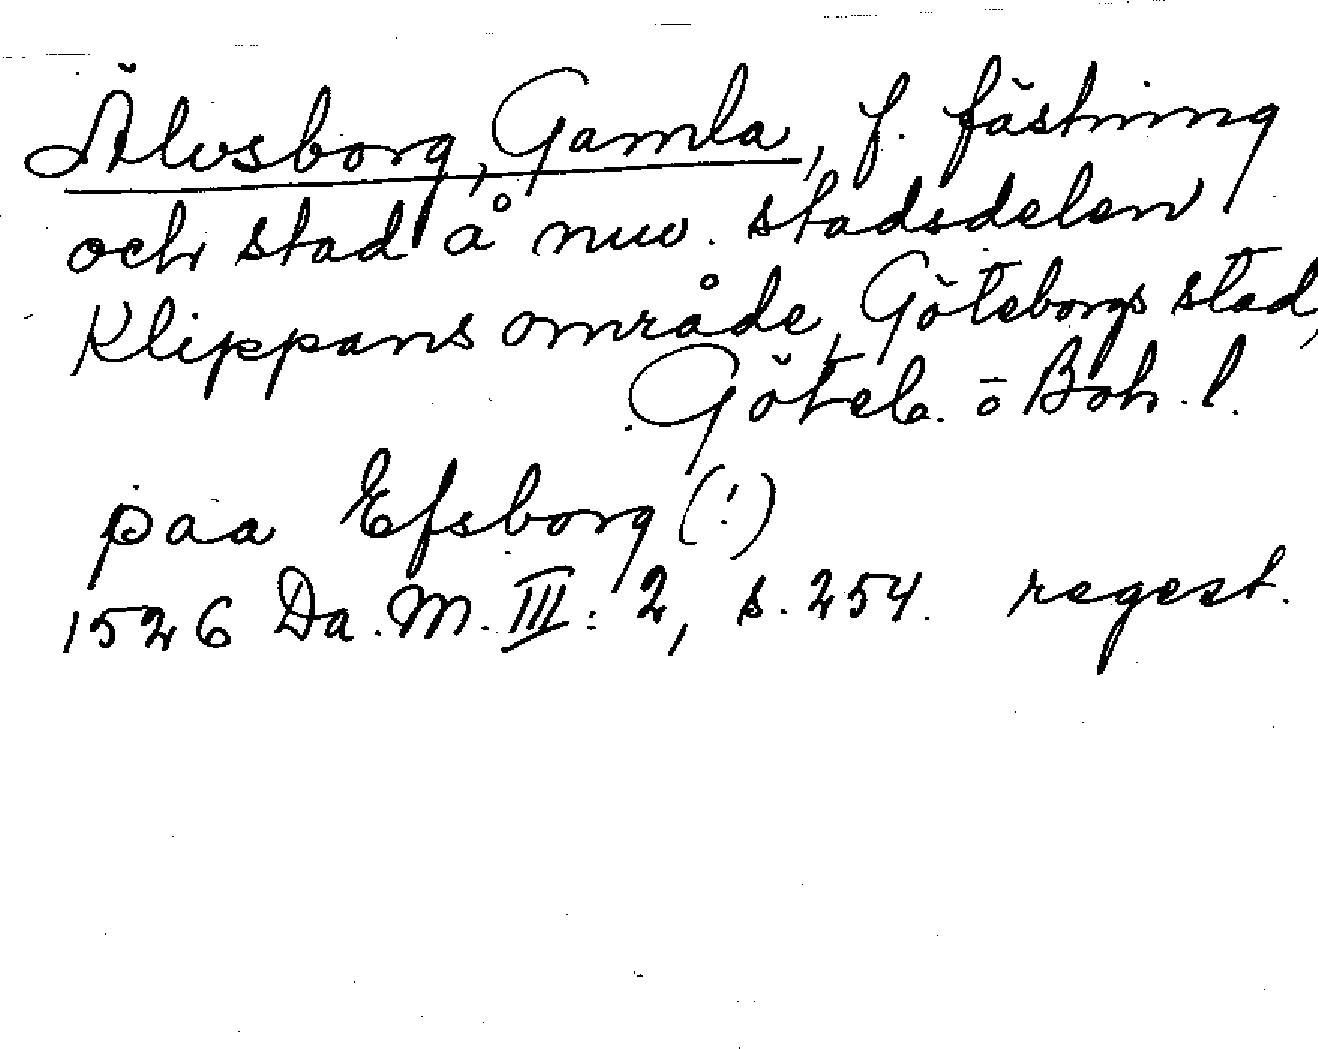 Älvsborg, Gamla, f. fästning
och stad å nuv. stadsdelen
Klippans område, Göteborgs stad,
Göteb. o Boh. l.
paa Efsborg (!)
1526 Da. M. III: 2, s. 254. regest.